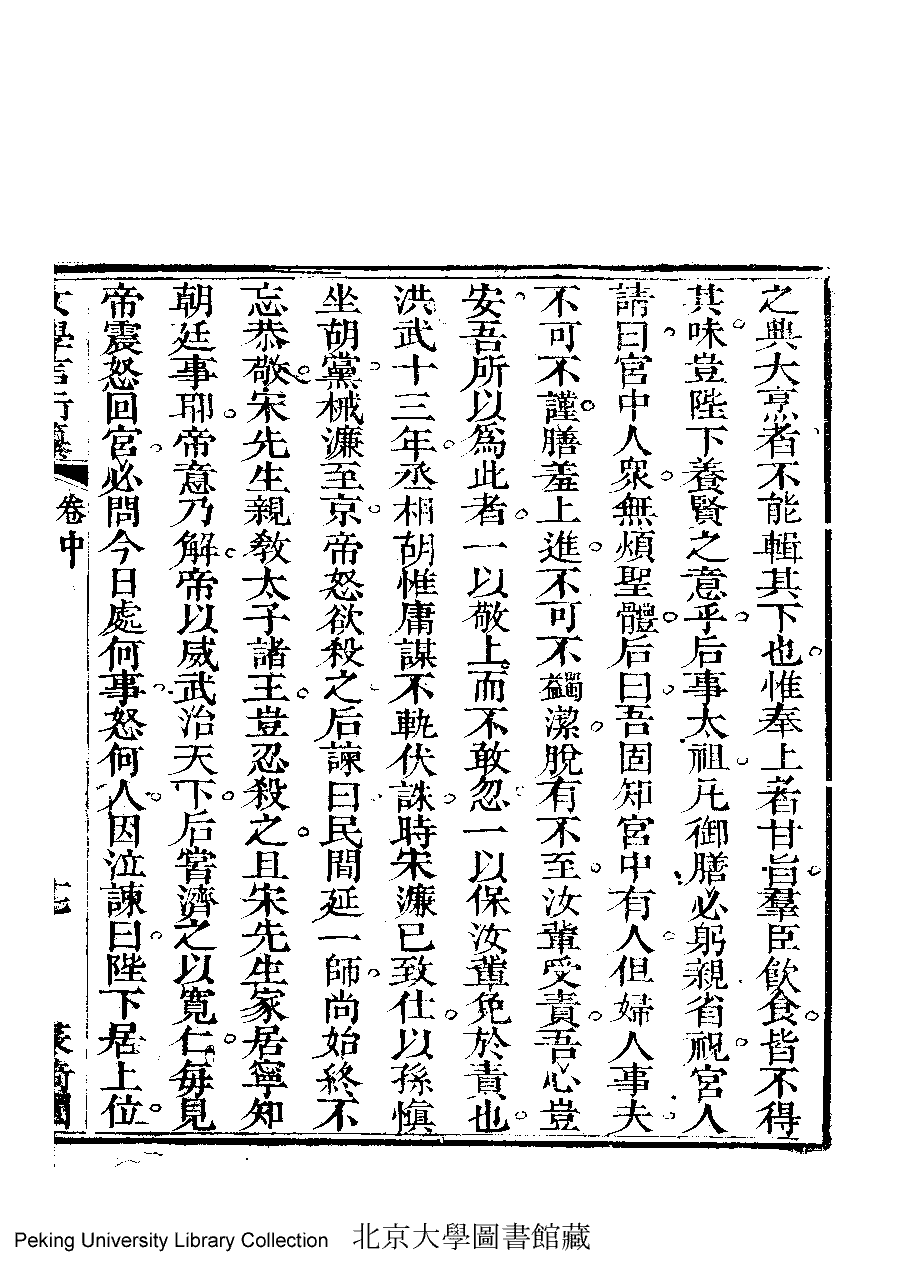 之典大烹者不能輯其下也惟奉上者甘旨羣臣飲食皆不得
其味豈陛下養賢之意乎后事太祖凡御膳必躬親省視宮人
請曰宮中人衆無煩聖體后曰吾固知宮中有人但婦人事夫
不可不謹膳羞上進不可不蠲潔脫有不至汝輩受責吾心豈
安吾所以爲此者一以敬上而不敢忽一以保汝輩免於責也
洪武十三年丞相胡惟庸謀不軌伏誅時宋濂已致仕以孫愼
坐胡黨械濂至京帝怒欲殺之后諫曰民間延一師尚始終不
忘恭敬宋先生親敎太子諸王豈忍殺之且宋先生家居寧知
朝廷事耶帝意乃解帝以威武治天下后嘗濟之以寬仁每見
帝震怒回宮必問今日處何事怒何人因泣諫曰陛下居上位
女學言行纂 卷中
Peking University Library Collection 北京大學圖書館藏